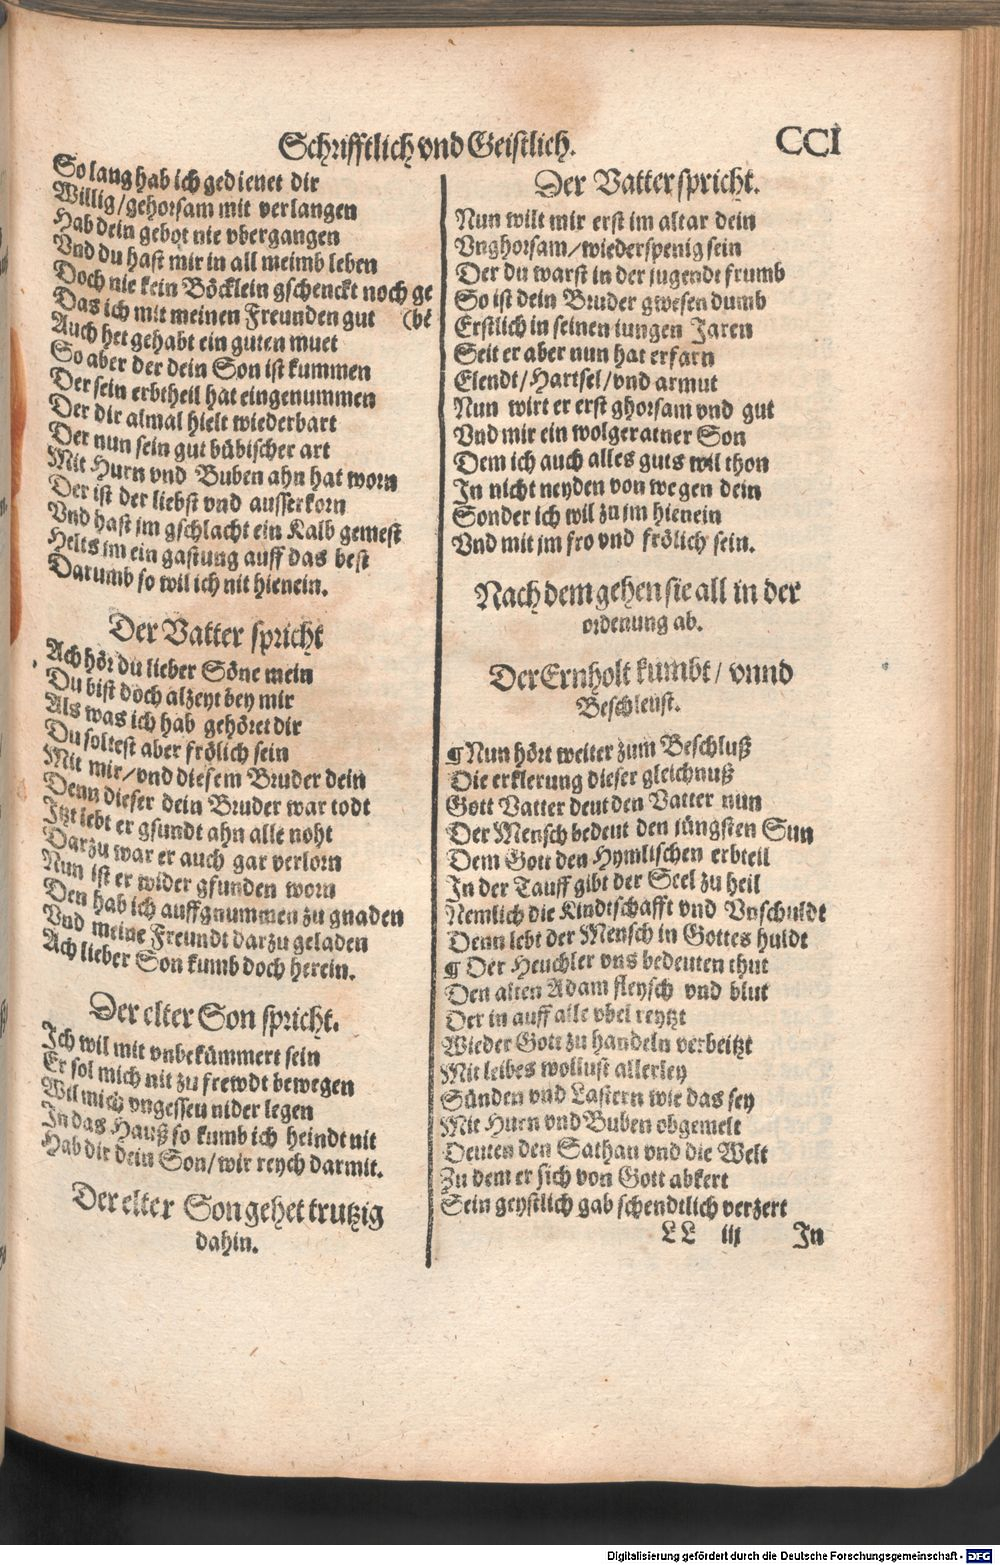 Schrifftlich vnd Geistlich. CCI
So lang hab ich gedienet dir
Willig/gehorsam mit verlangen
Hab dein gebot nie vbergangen
Vnd du hast mir in all meimb leben
Doch nie kein Böcklein gschenckt noch ge
Das ich mit meinen Freunden gut (bē
Auch het gehabt ein guten muet
So aber der dein Son ist kummen
Der sein erbtheil hat eingenummen
Der dir almal hielt wiederbart
Der nun sein gut bübischer art
Mit Hurn vnd Buben ahn hat worn
Der ist der liebst vnd ausserkorn
Vnd hast jm gschlacht ein Kalb gemest
Helts im ein gastung auff das best
Darumb so wil ich nit hienein.
Der Vatter spricht
Ach hör du lieber Söne mein
Du bist doch alzeyt bey mir
Als was ich hab gehöret dir
Du soltest aber frölich sein
Mit mir/vnd diesem Bruder dein
Denn dieser dein Bruder war todt
Jtzt lebt er gsundt ahn alle noht
Darzu war er auch gar verlorn
Nun ist er wider gfunden worn
Den hab ich auffgnummen zu gnaden
Vnd meine Freundt darzu geladen
Ach lieber Son kumb doch herein.
Der elter Son spricht.
Ich wil mit vnbekümmert sein
Er sol mich nit zu frewdt bewegen
Wil mich vngessen nider legen
In das Hauß so kumb ich heindt nit
Hab dir dein Son/wir reych darmit.
Der elter Son gehet trutzig
dahin.
Der Vatter spricht.
Nun wilt mir erst im altar dein
Vnghorsam/wiederspenig sein
Der du warst in der jugendt frumb
So ist dein Bruder gwesen dumb
Erstlich in seinen iungen Jaren
Seit er aber nun hat erfarn
Elendt/Hartsel/vnd armut
Nun wirt er erst ghorsam vnd gut
Vnd mir ein wolgeratner Son
Dem ich auch alles guts wil thon
In nicht neyden von wegen dein
Sonder ich wil zu jm hienein
Vnd mit jm fro vnd frölich sein.
Nach dem gehen sie all in der
ordenung ab.
Der Ernholt kumbt/ vnnd
Beschleust.
¶ Nun hört weiter zum Beschluß
Die erklerung dieser gleichnuß
Gott Vatter deut den Vatter nun
Der Mensch bedeut den jüngsten Sun
Dem Gott den Hymlischen erbteil
In der Tauff gibt der Seel zu heil
Nemlich die Kindtschafft vnd Vnschuldt
Denn lebt der Mensch in Gottes huldt
¶ Der Heuchler vns bedeuten thut
Den alten Adam fleysch vnd blut
Der in auff alle vbel reytzt
Wieder Gott zu handeln verbeitzt
Mit leibes wollust allerley
Sünden vnd Lastern wie das sey
Mit Hurn vnd Buben obgemelt
Deuten den Sathan vnd die Welt
Zu dem er sich von Gott abkert
Sein geystlich gab schendtlich verzert
LL iij In
Digitalisierung gefördert durch die Deutsche Forschungsgemeinschaft - DFG